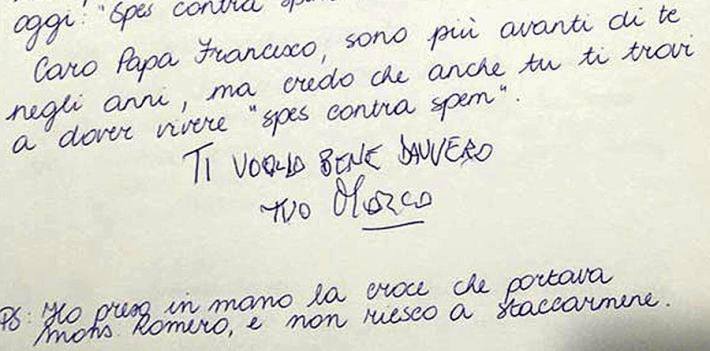 oggi: "Spes contra spem
Caro Papa Francesco, sono più avanti di te
negli anni, ma credo che anche tu ti trovi
a dover vivere "spes contra spem".
TI VOGLIO BENE DAVVERO
TUO Marco
PS: Ho preso in mano la croce che portava
mons. Romero, e non riesco a staccarmene.